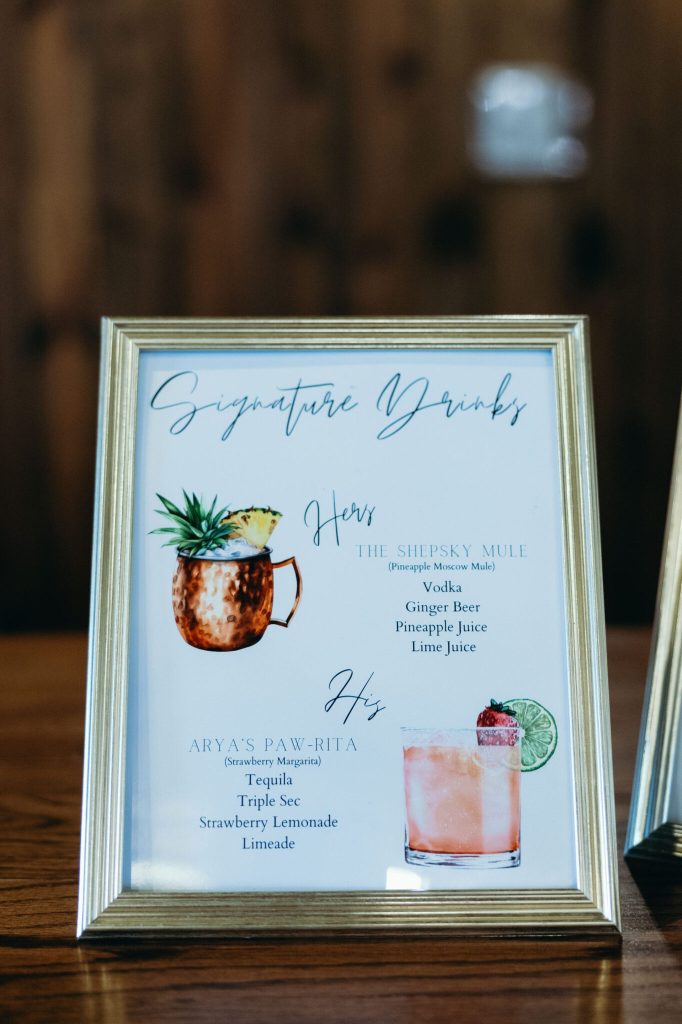 Signature Drinks
Hers
THE SHEPSKY MULE
(Pineapple Moscow Mule)
Vodka
Ginger Beer
Pineapple Juice
Lime Juice
His
ARYA'S PAW-RITA
(Strawberry Margarita)
Tequila
Triple Sec
Strawberry Lemonade
Limeade